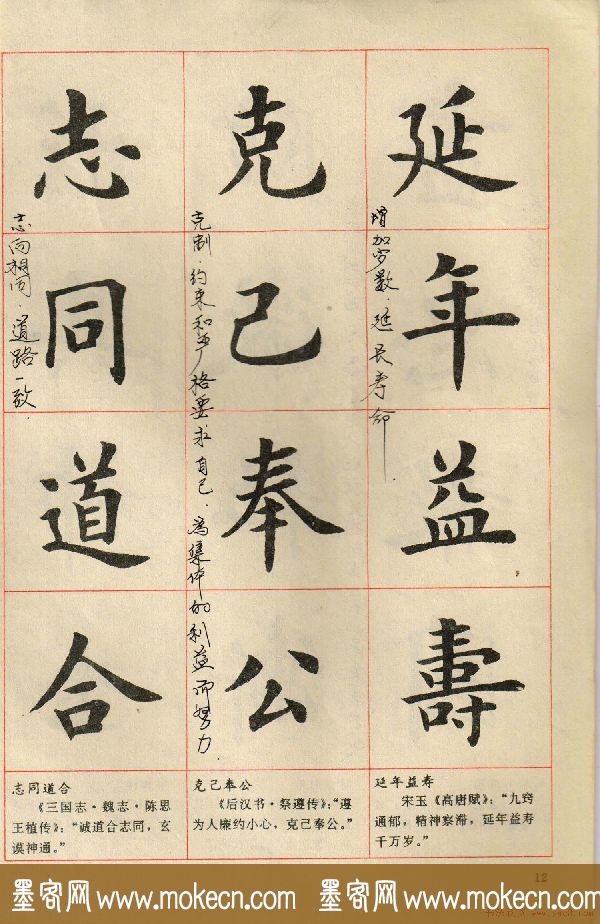 墨客网 www.mokecn.com 墨客网 www.mokecn.com
延年益壽
增加岁数.延长寿命
克己奉公
克制.约束和严格要求自己.为集体的利益而努力.
志同道合
志向相同.道路一致.
延年益寿
宋玉《高唐赋》：“九窍
通郁，精神察滞，延年益寿
千万岁。”
克己奉公
《后汉书·祭遵传》：“遵
为人廉约小心，克己奉公。”
志同道合
《三国志·魏志·陈思
王植传》：“诚道合志同，玄
谟神通。”
12
墨客网 www.mokecn.com 墨客网 www.mokecn.com